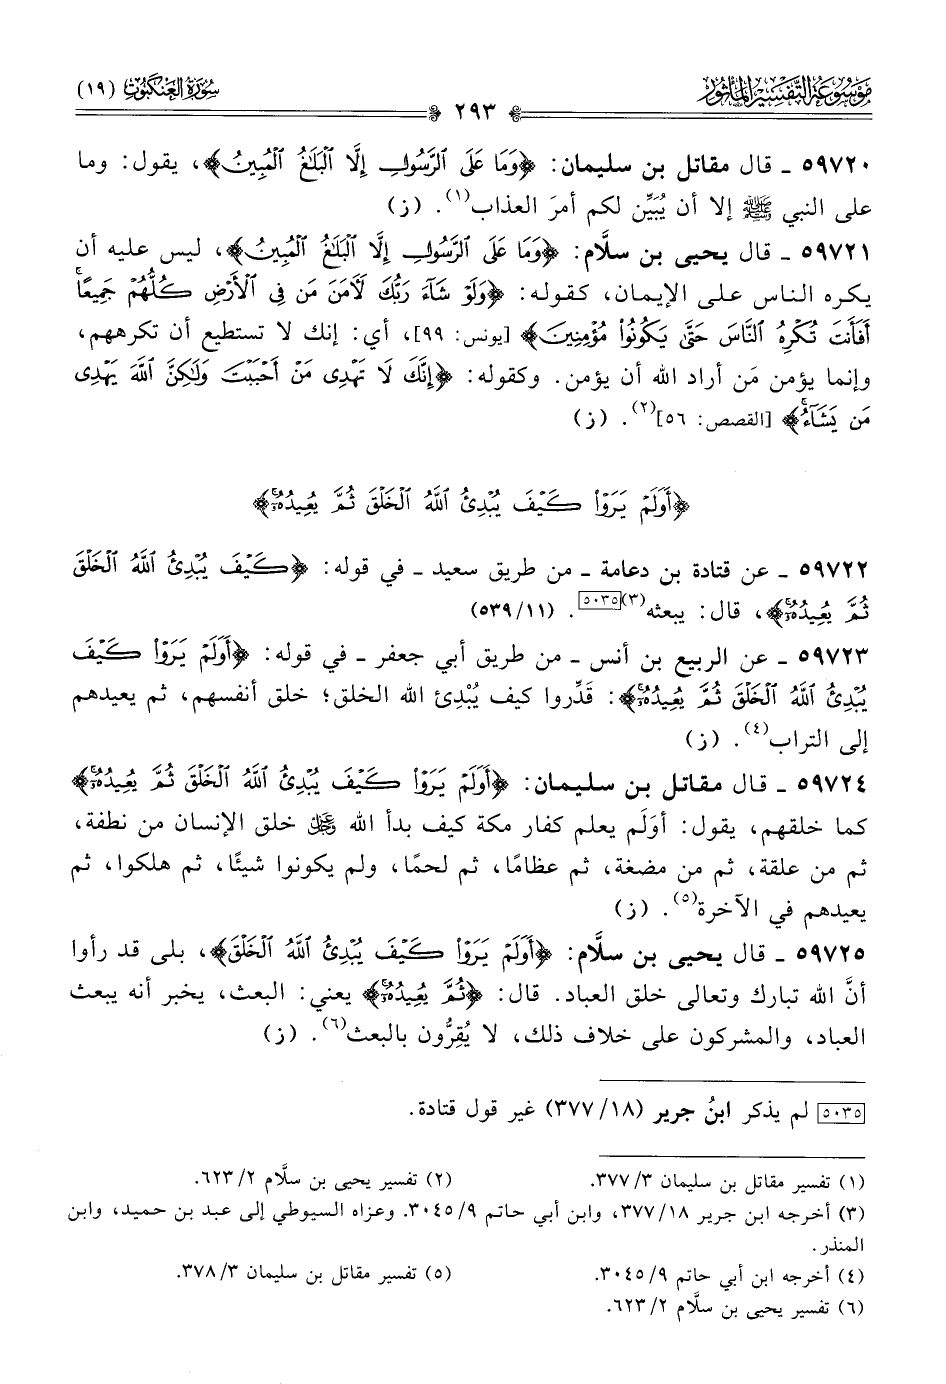 مَوْسُوعَةُ التَّفْسِيرِ المَأْثُورِ
سُورَةُ العَنكَبُوتِ (١٩)
٢٩٣
٥٩٧٢٠ ـ قال مقاتل بن سليمان: ﴿وَمَا عَلَى ٱلرَّسُولِ إِلَّا ٱلْبَلَٰغُ ٱلْمُبِينُ﴾، يقول: وما
على النبي ﷺ إلا أن يُبَيِّن لكم أمرَ العذاب(١). (ز)
٥٩٧٢١ ـ قال يحيى بن سلَّام: ﴿وَمَا عَلَى ٱلرَّسُولِ إِلَّا ٱلْبَلَٰغُ ٱلْمُبِينُ﴾، ليس عليه أن
يكره الناس على الإيمان، كقوله: ﴿وَلَوْ شَآءَ رَبُّكَ لَأٓمَنَ مَن فِى ٱلْأَرْضِ كُلُّهُمْ جَمِيعًا ۚ
أَفَأَنتَ تُكْرِهُ ٱلنَّاسَ حَتَّىٰ يَكُونُوا۟ مُؤْمِنِينَ﴾ [يونس: ٩٩]، أي: إنك لا تستطيع أن تكرههم،
وإنما يؤمن مَن أراد الله أن يؤمن. وكقوله: ﴿إِنَّكَ لَا تَهْدِى مَنْ أَحْبَبْتَ وَلَٰكِنَّ ٱللَّهَ يَهْدِى
مَن يَشَآءُ ۚ﴾ [القصص: ٥٦](٢). (ز)
﴿أَوَلَمْ يَرَوْا۟ كَيْفَ يُبْدِئُ ٱللَّهُ ٱلْخَلْقَ ثُمَّ يُعِيدُهُۥٓ ۚ﴾
٥٩٧٢٢ ـ عن قتادة بن دعامة ـ من طريق سعيد ـ في قوله: ﴿كَيْفَ يُبْدِئُ ٱللَّهُ ٱلْخَلْقَ
ثُمَّ يُعِيدُهُۥٓ ۚ﴾، قال: يبعثه(٣)[٥٠٣٥]. (٥٣٩/١١)
٥٩٧٢٣ ـ عن الربيع بن أنس ـ من طريق أبي جعفر ـ في قوله: ﴿أَوَلَمْ يَرَوْا۟ كَيْفَ
يُبْدِئُ ٱللَّهُ ٱلْخَلْقَ ثُمَّ يُعِيدُهُۥٓ ۚ﴾: قَدِّروا كيف يُبْدِئ الله الخلق؛ خلق أنفسهم، ثم يعيدهم
إلى التراب(٤). (ز)
٥٩٧٢٤ ـ قال مقاتل بن سليمان: ﴿أَوَلَمْ يَرَوْا۟ كَيْفَ يُبْدِئُ ٱللَّهُ ٱلْخَلْقَ ثُمَّ يُعِيدُهُۥٓ ۚ﴾
كما خلقهم، يقول: أوَلَم يعلم كفار مكة كيف بدأ الله ﷻ خلق الإنسان من نطفة،
ثم من علقة، ثم من مضغة، ثم عظامًا، ثم لحمًا، ولم يكونوا شيئًا، ثم هلكوا، ثم
يعيدهم في الآخرة(٥). (ز)
٥٩٧٢٥ ـ قال يحيى بن سلَّام: ﴿أَوَلَمْ يَرَوْا۟ كَيْفَ يُبْدِئُ ٱللَّهُ ٱلْخَلْقَ﴾، بلى قد رأوا
أنَّ الله تبارك وتعالى خلق العباد. قال: ﴿ثُمَّ يُعِيدُهُۥٓ ۚ﴾ يعني: البعث، يخبر أنه يبعث
العباد، والمشركون على خلاف ذلك، لا يُقِرُّون بالبعث(٦). (ز)
[٥٠٣٥] لم يذكر ابنُ جرير (٣٧٧/١٨) غير قول قتادة.
(١) تفسير مقاتل بن سليمان ٣/ ٣٧٧. (٢) تفسير يحيى بن سلَّام ٢/ ٦٢٣.
(٣) أخرجه ابن جرير ١٨/ ٣٧٧، وابن أبي حاتم ٩/ ٣٠٤٥. وعزاه السيوطي إلى عبد بن حميد، وابن
المنذر.
(٤) أخرجه ابن أبي حاتم ٩/ ٣٠٤٥. (٥) تفسير مقاتل بن سليمان ٣/ ٣٧٨.
(٦) تفسير يحيى بن سلَّام ٢/ ٦٢٣.